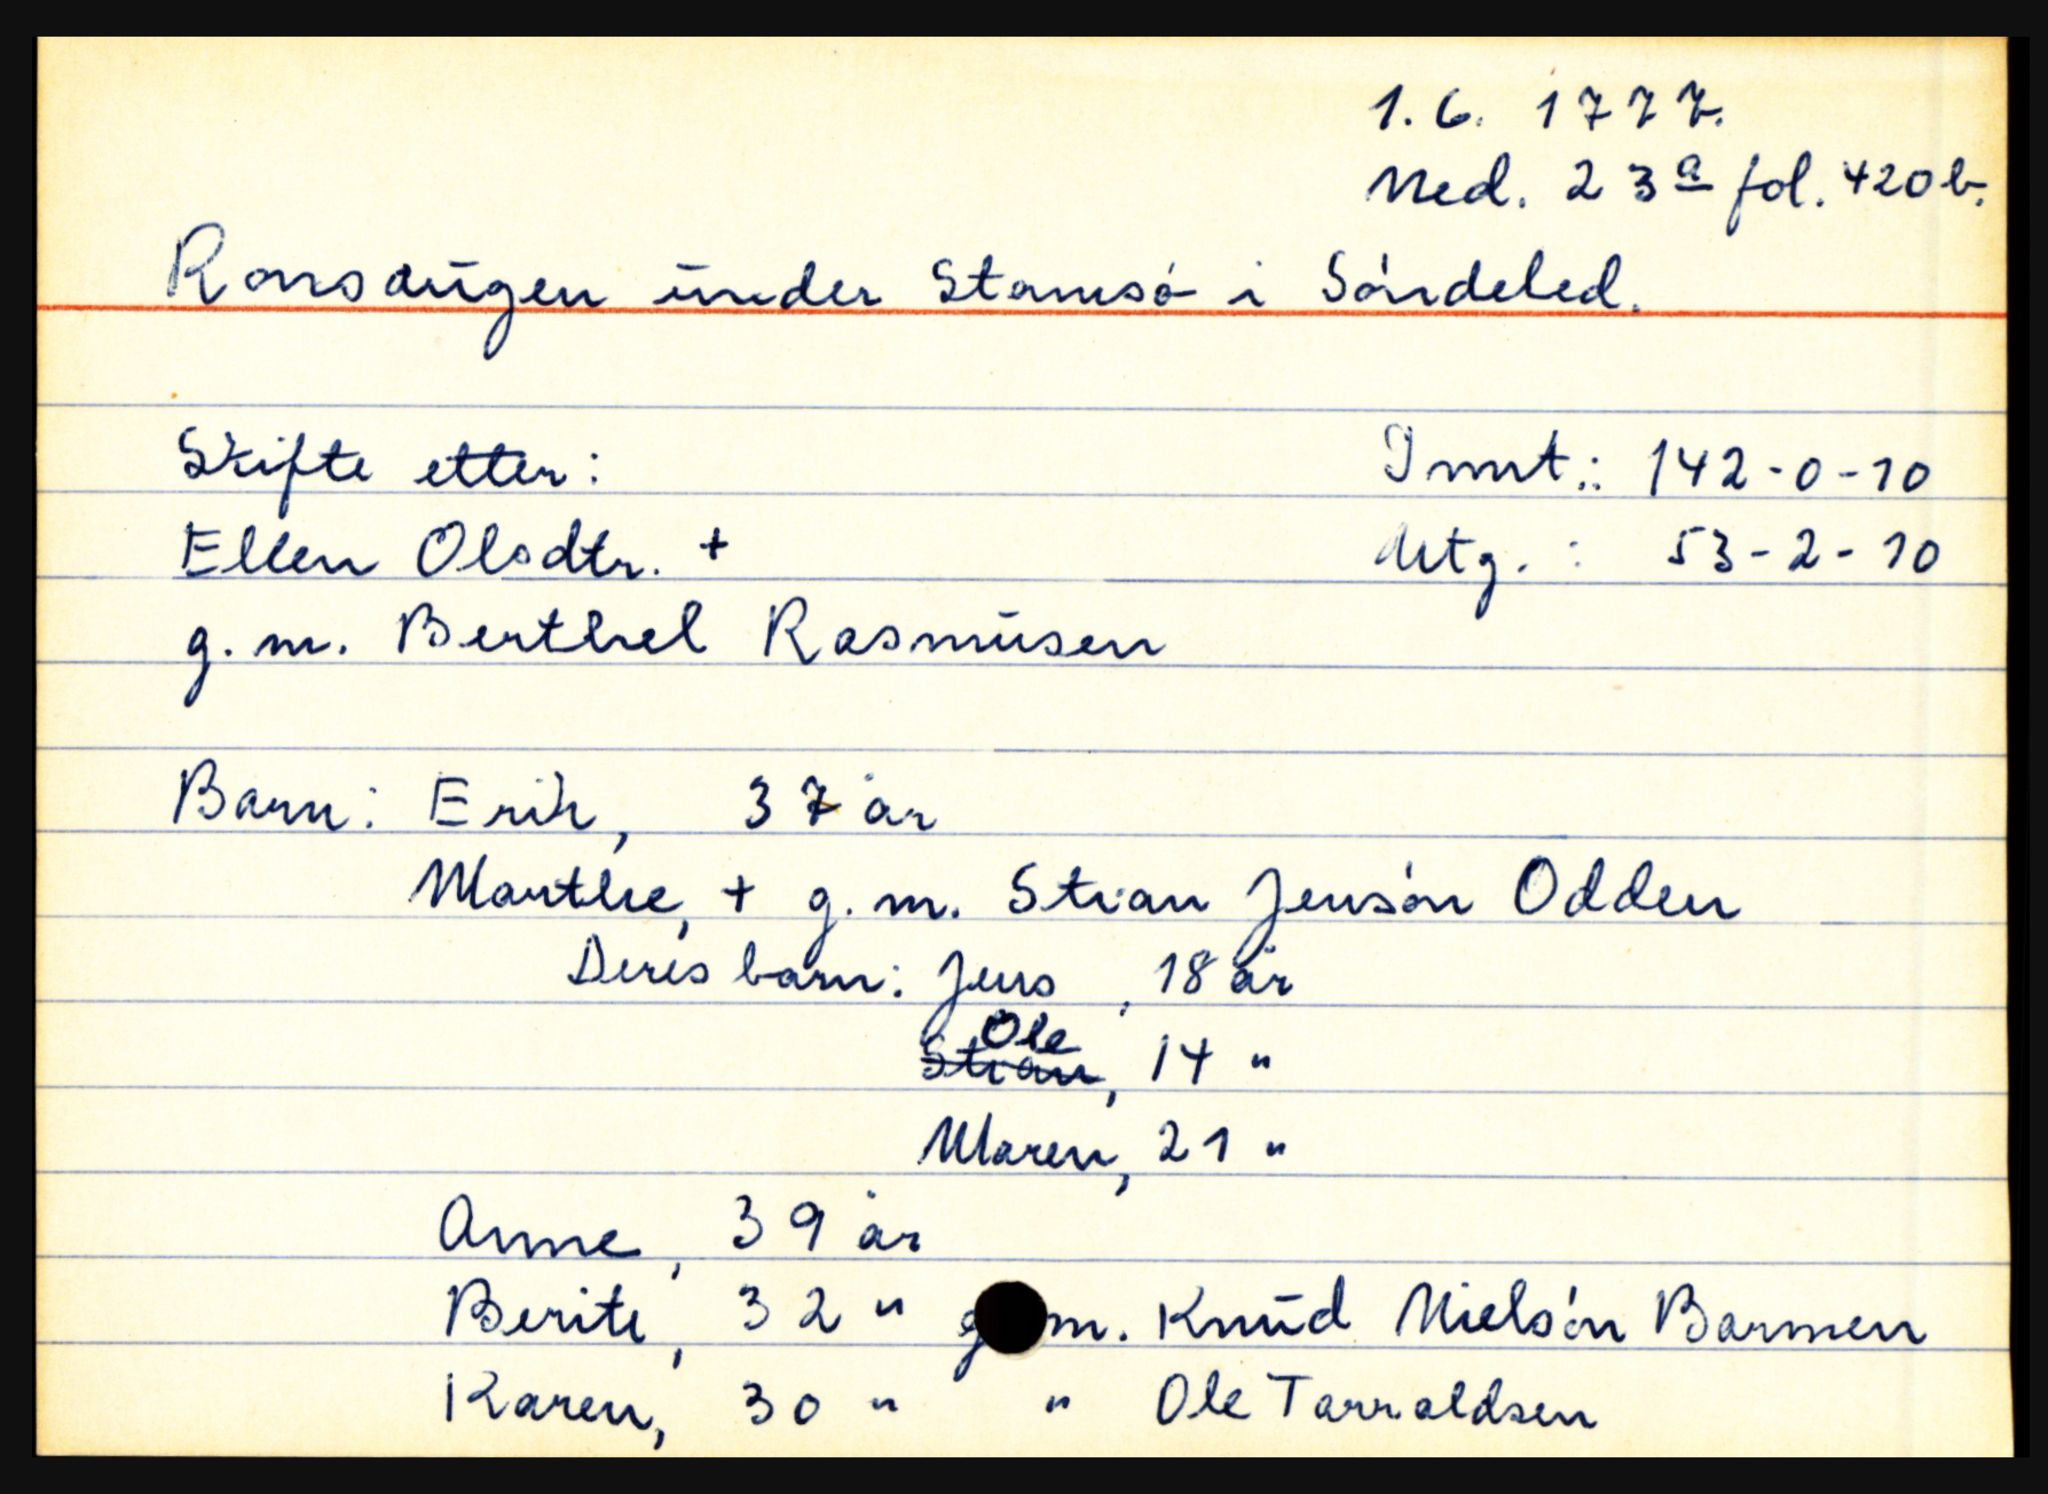 1.6. 1777.
Ned. 23a fol. 420b.
Ronsaugen under Stamsø i Søndeled.
Skifte etter:
Innt.: 142-0-10
Ellen Olsdtr. +
Utg. : 53-2-10
g.m. Berthel Rasmusen
Barn: Erik, 37 år
Marthe, + g.m. Stian Jensøn Odden
Deres barn: Jens, 18 år
Ole
Stian, 14 "
Maren, 21 "
Anne, 39 år
Berite, 32 " g.m. Knud Nielsøn Barmen
Karen, 30 " " Ole Tarraldsen